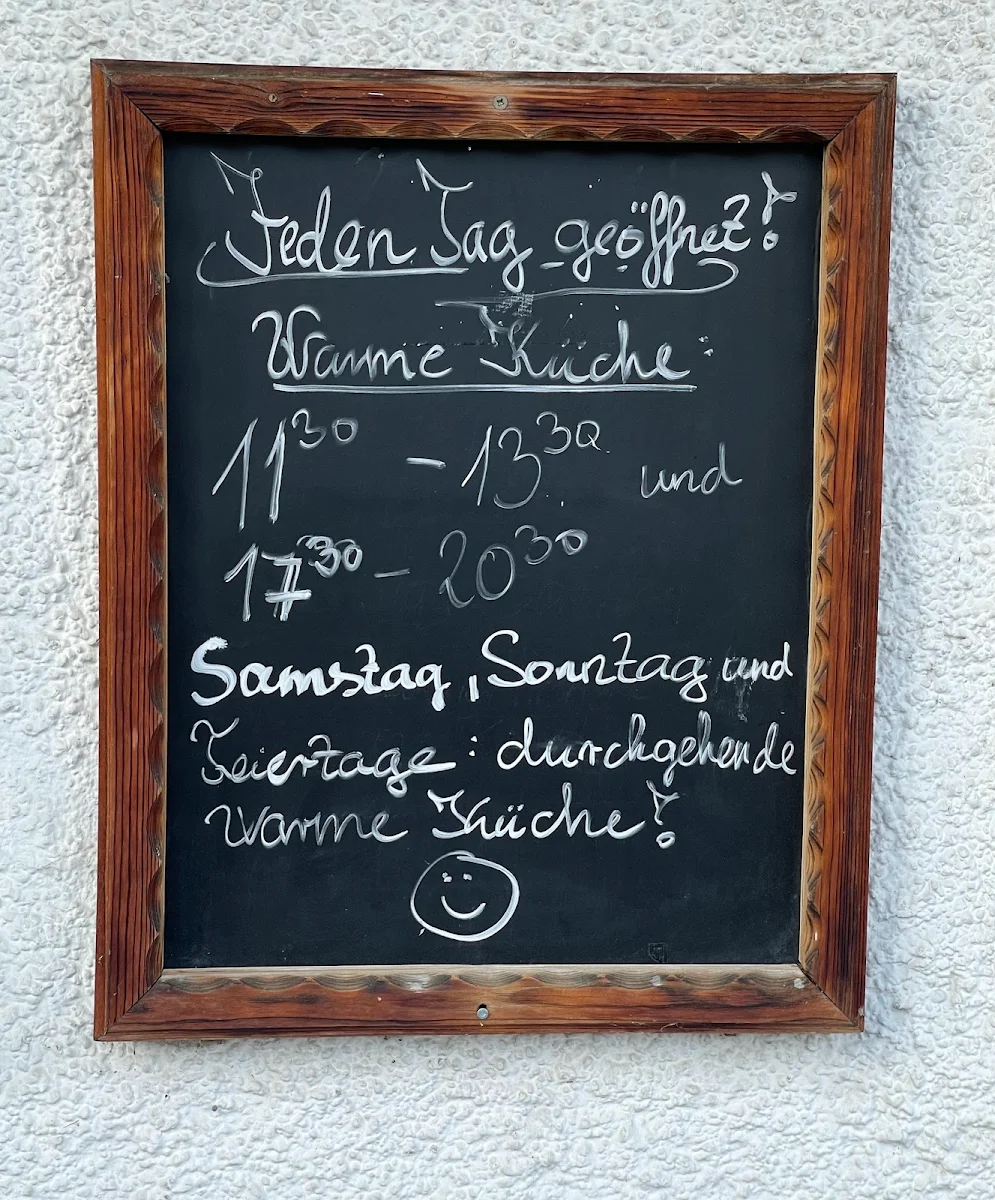 Jeden Tag geöffnet!
Warme Küche:
11³⁰ - 13³⁰ und
17³⁰ - 20³⁰
Samstag, Sonntag und
Feiertage: durchgehende
Warme Küche!